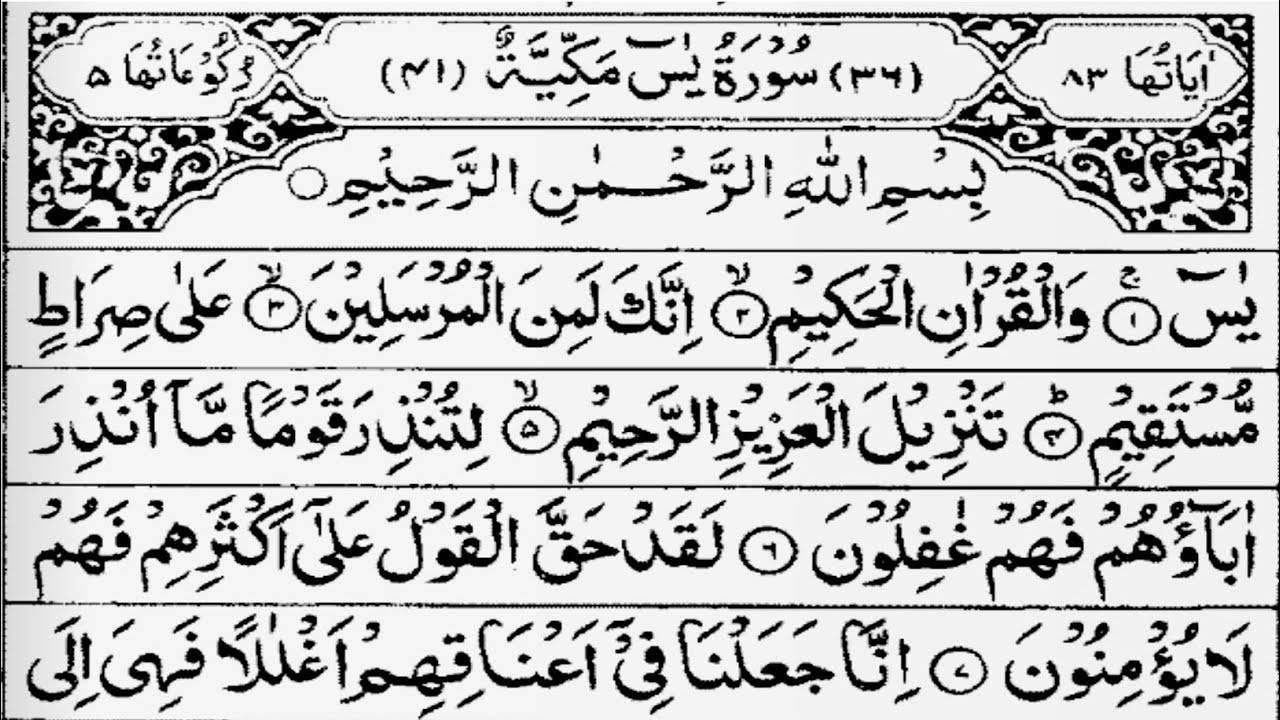 اٰيَاتُهَا ٨٣ (٣٦) سُوْرَةُ يٰسٓ مَكِّيَّةٌ (٤١) رُكُوْعَاتُهَا ٥
بِسْمِ اللّٰهِ الرَّحْمٰنِ الرَّحِيْمِ ○
يٰسٓ ۚ ﴿١﴾ وَالْقُرْاٰنِ الْحَكِيْمِ ۙ ﴿٢﴾ اِنَّكَ لَمِنَ الْمُرْسَلِيْنَ ۙ ﴿٣﴾ عَلٰى صِرَاطٍ
مُّسْتَقِيْمٍ ؕ ﴿٤﴾ تَنْزِيْلَ الْعَزِيْزِ الرَّحِيْمِ ۙ ﴿٥﴾ لِتُنْذِرَ قَوْمًا مَّاۤ اُنْذِرَ
اٰبَآؤُهُمْ فَهُمْ غٰفِلُوْنَ ﴿٦﴾ لَقَدْ حَقَّ الْقَوْلُ عَلٰۤى اَكْثَرِهِمْ فَهُمْ
لَا يُؤْمِنُوْنَ ﴿٧﴾ اِنَّا جَعَلْنَا فِيْۤ اَعْنَاقِهِمْ اَغْلٰلًا فَهِىَ اِلَى